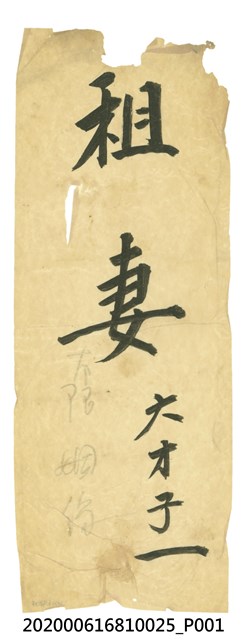 租妻
大才子一
202000616810025_P001